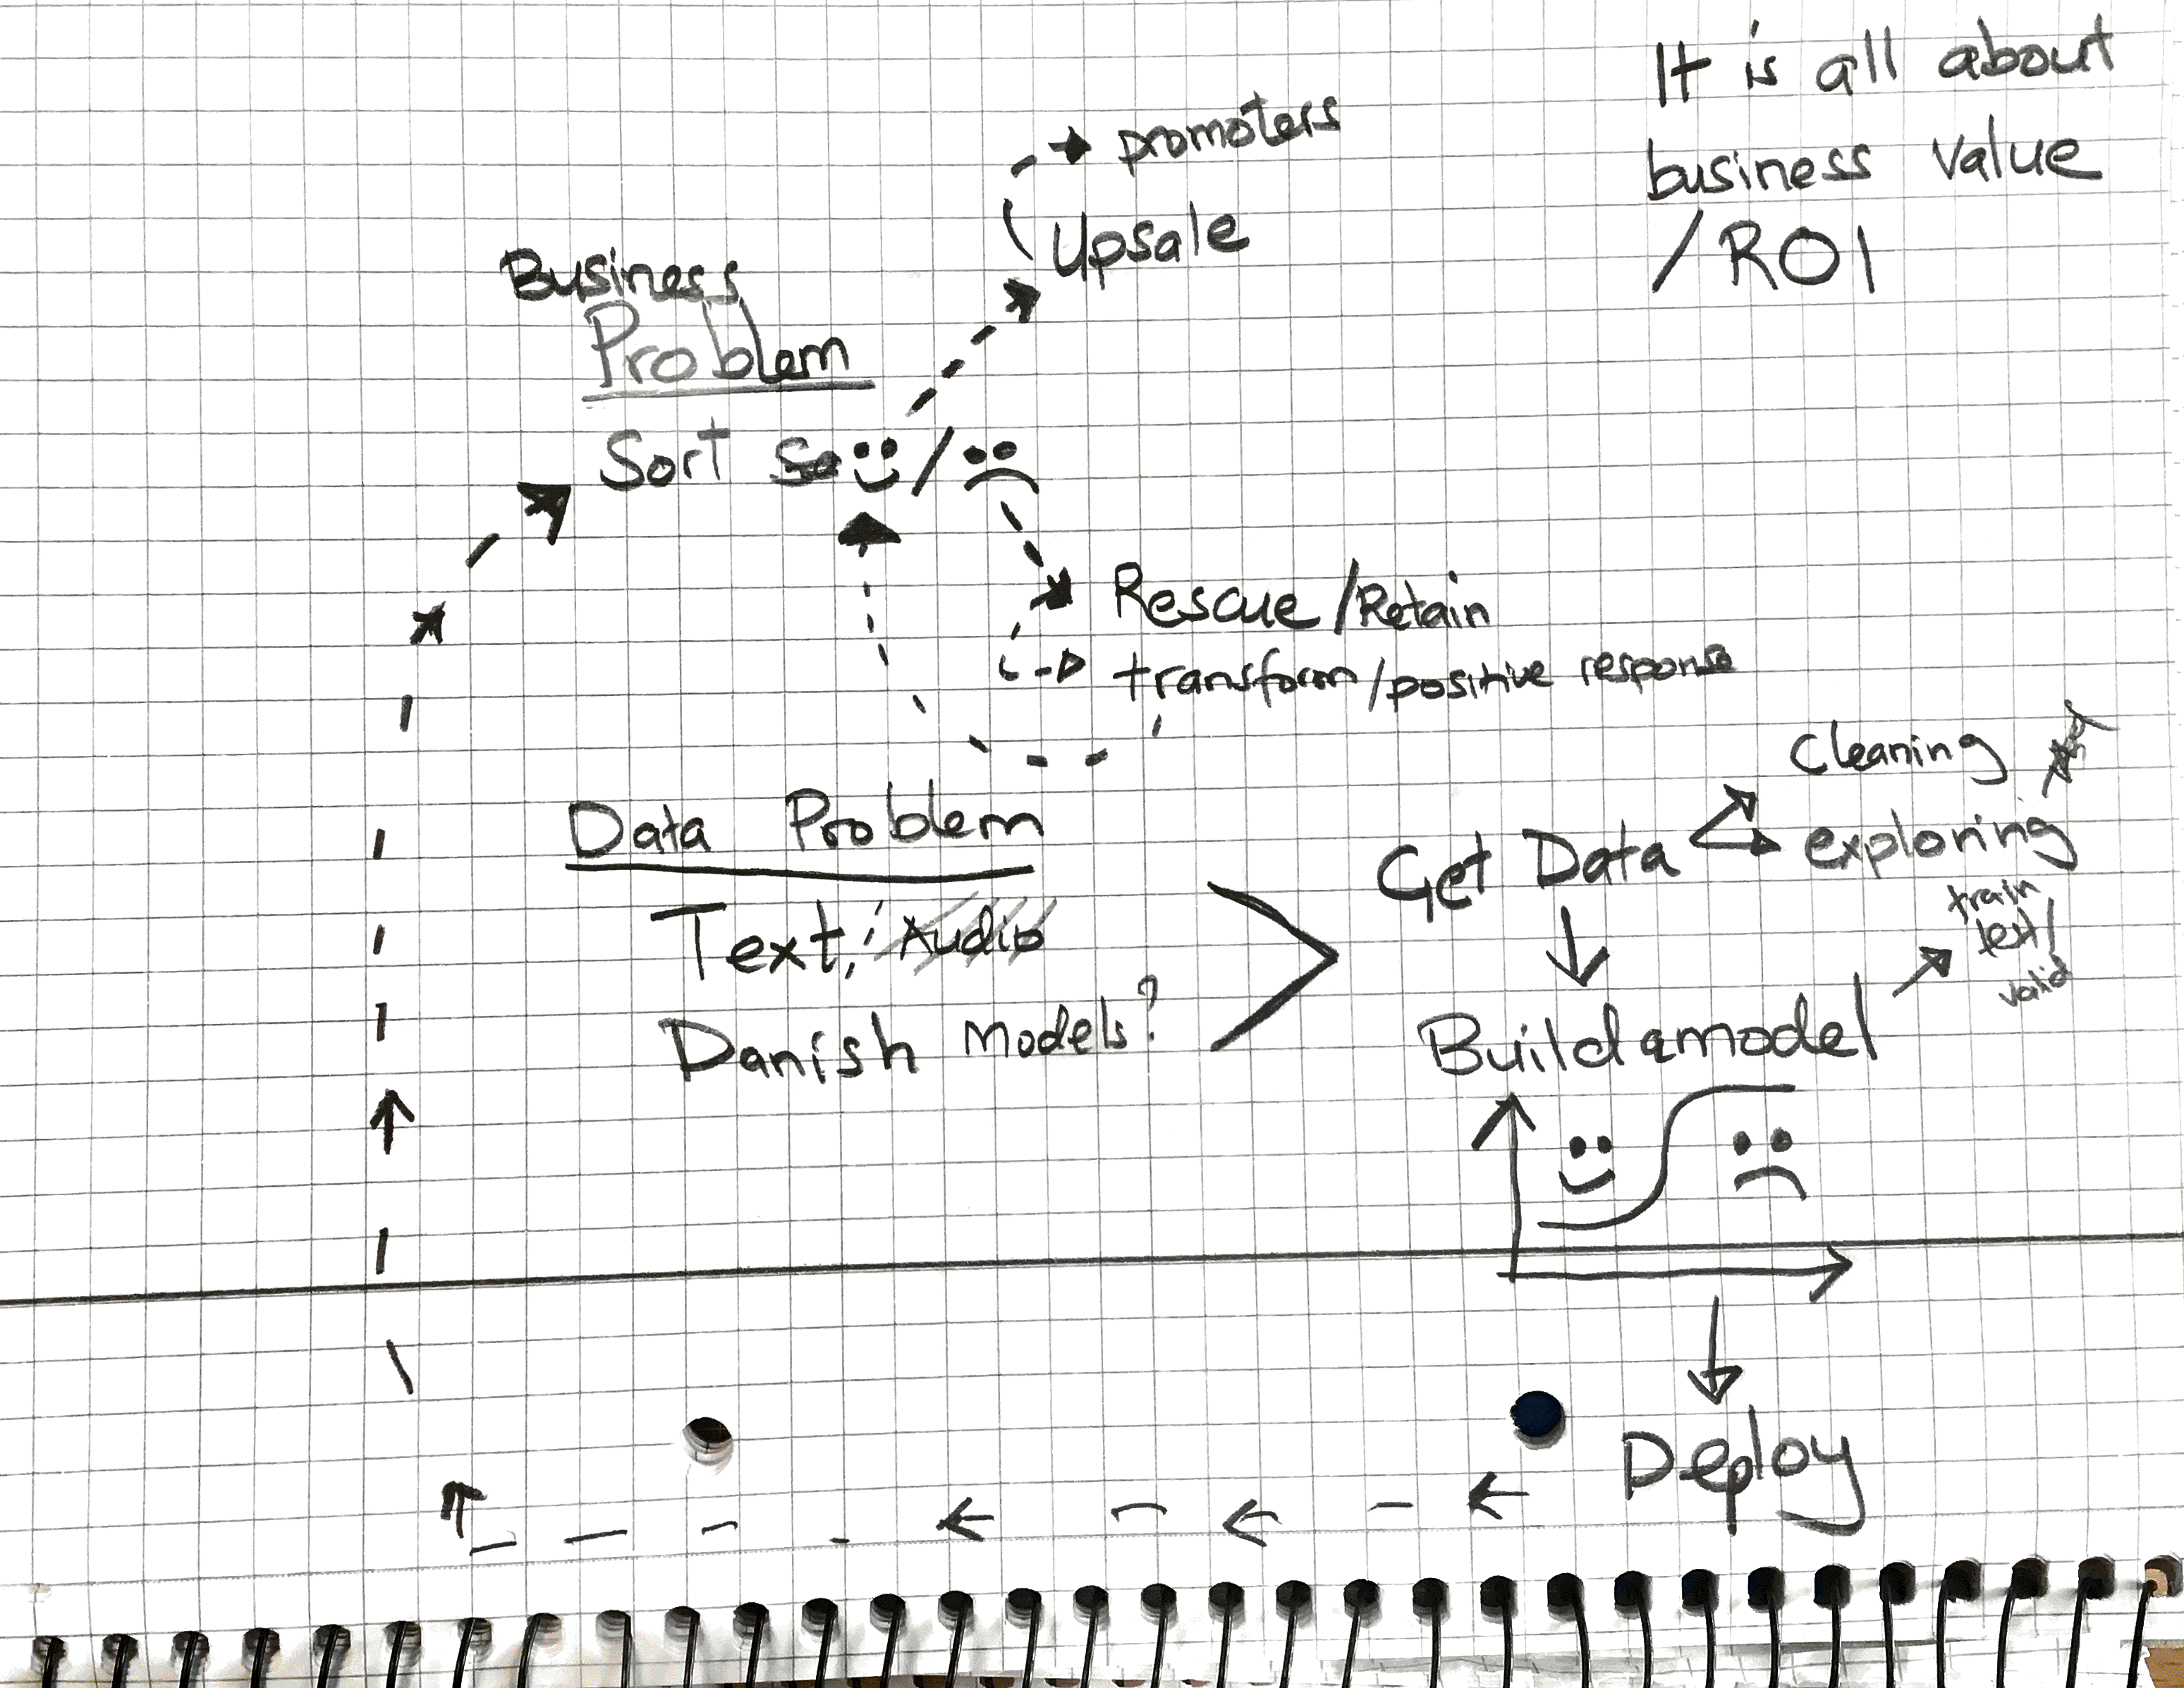 It is all about
business value
/ROI
promoters
Upsale
Business
Problem
Sort 🙂/🙁
Rescue/Retain
transform/positive response
Data Problem
Text, Audio
Danish Models?
Get Data
Cleaning
exploring
train
test/
valid
Build a model
Deploy